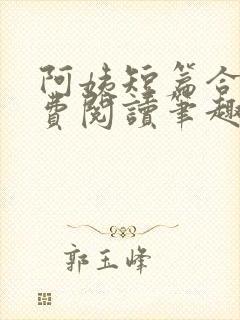 阿姊短篇合
費閱讀筆趣
郭玉峰